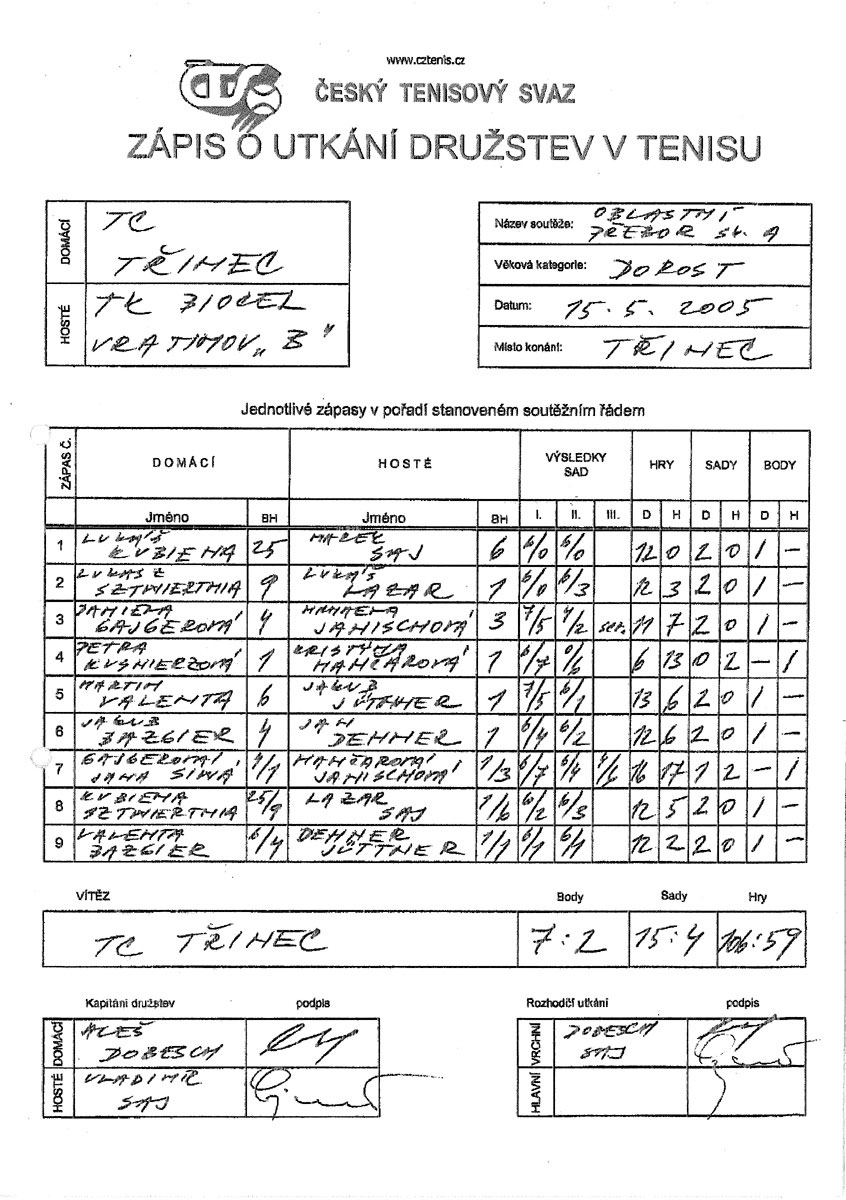 www.cztenis.cz
ČTS
ČESKÝ TENISOVÝ SVAZ
ZÁPIS O UTKÁNÍ DRUŽSTEV V TENISU
DOMÁCÍ
TC
TŘINEC
HOSTÉ
TK BIOCEL
VRATIMOV „B"
Název soutěže: OBLASTNÍ
PŘEBOR SK. A
Věková kategorie: DOROST
Datum: 15. 5. 2005
Místo konání: TŘINEC
Jednotlivé zápasy v pořadí stanoveném soutěžním řádem
ZÁPAS Č. DOMÁCÍ HOSTÉ VÝSLEDKY SAD HRY SADY BODY
Jméno BH Jméno BH I. II. III. D H D H D H
1 LUKÁŠ KUBIENA 25 MAREK SAJ 6 6/0 6/0 12 0 2 0 1 –
2 LUKASZ SZTWIERTNIA 9 LUKÁŠ LAZAR 1 6/0 6/3 12 3 2 0 1 –
3 DANIELA GAJGEROVÁ 4 MICHAELA JANISCHOVÁ 3 7/5 4/2 scr. 11 7 2 0 1 –
4 PETRA KUSNIERZOVÁ 1 KRISTÝNA HANČAROVÁ 1 6/7 0/6 6 13 0 2 – 1
5 MARTIN VALENTA 6 JAKUB JÜTTNER 1 7/5 6/1 13 6 2 0 1 –
6 JAKUB BAZGIER 4 JAN DEHNER 1 6/4 6/2 12 6 2 0 1 –
7 GAJGEROVÁ JANA SIWÁ 4/1 HANČAROVÁ JANISCHOVÁ 1/3 6/7 6/4 4/6 16 17 1 2 – 1
8 KUBIENA SZTWIERTNIA 25/9 LAZAR SAJ 1/6 6/2 6/3 12 5 2 0 1 –
9 VALENTA BAZGIER 6/4 DEHNER JÜTTNER 1/1 6/1 6/1 12 2 2 0 1 –
VÍTĚZ Body Sady Hry
TC TŘINEC 7:2 15:4 106:59
Kapitáni družstev podpis
DOMÁCÍ ALEŠ
DOBESCH
HOSTÉ VLADIMÍR
SAJ
Rozhodčí utkání podpis
VRCHNÍ DOBESCH
SAJ
HLAVNÍ